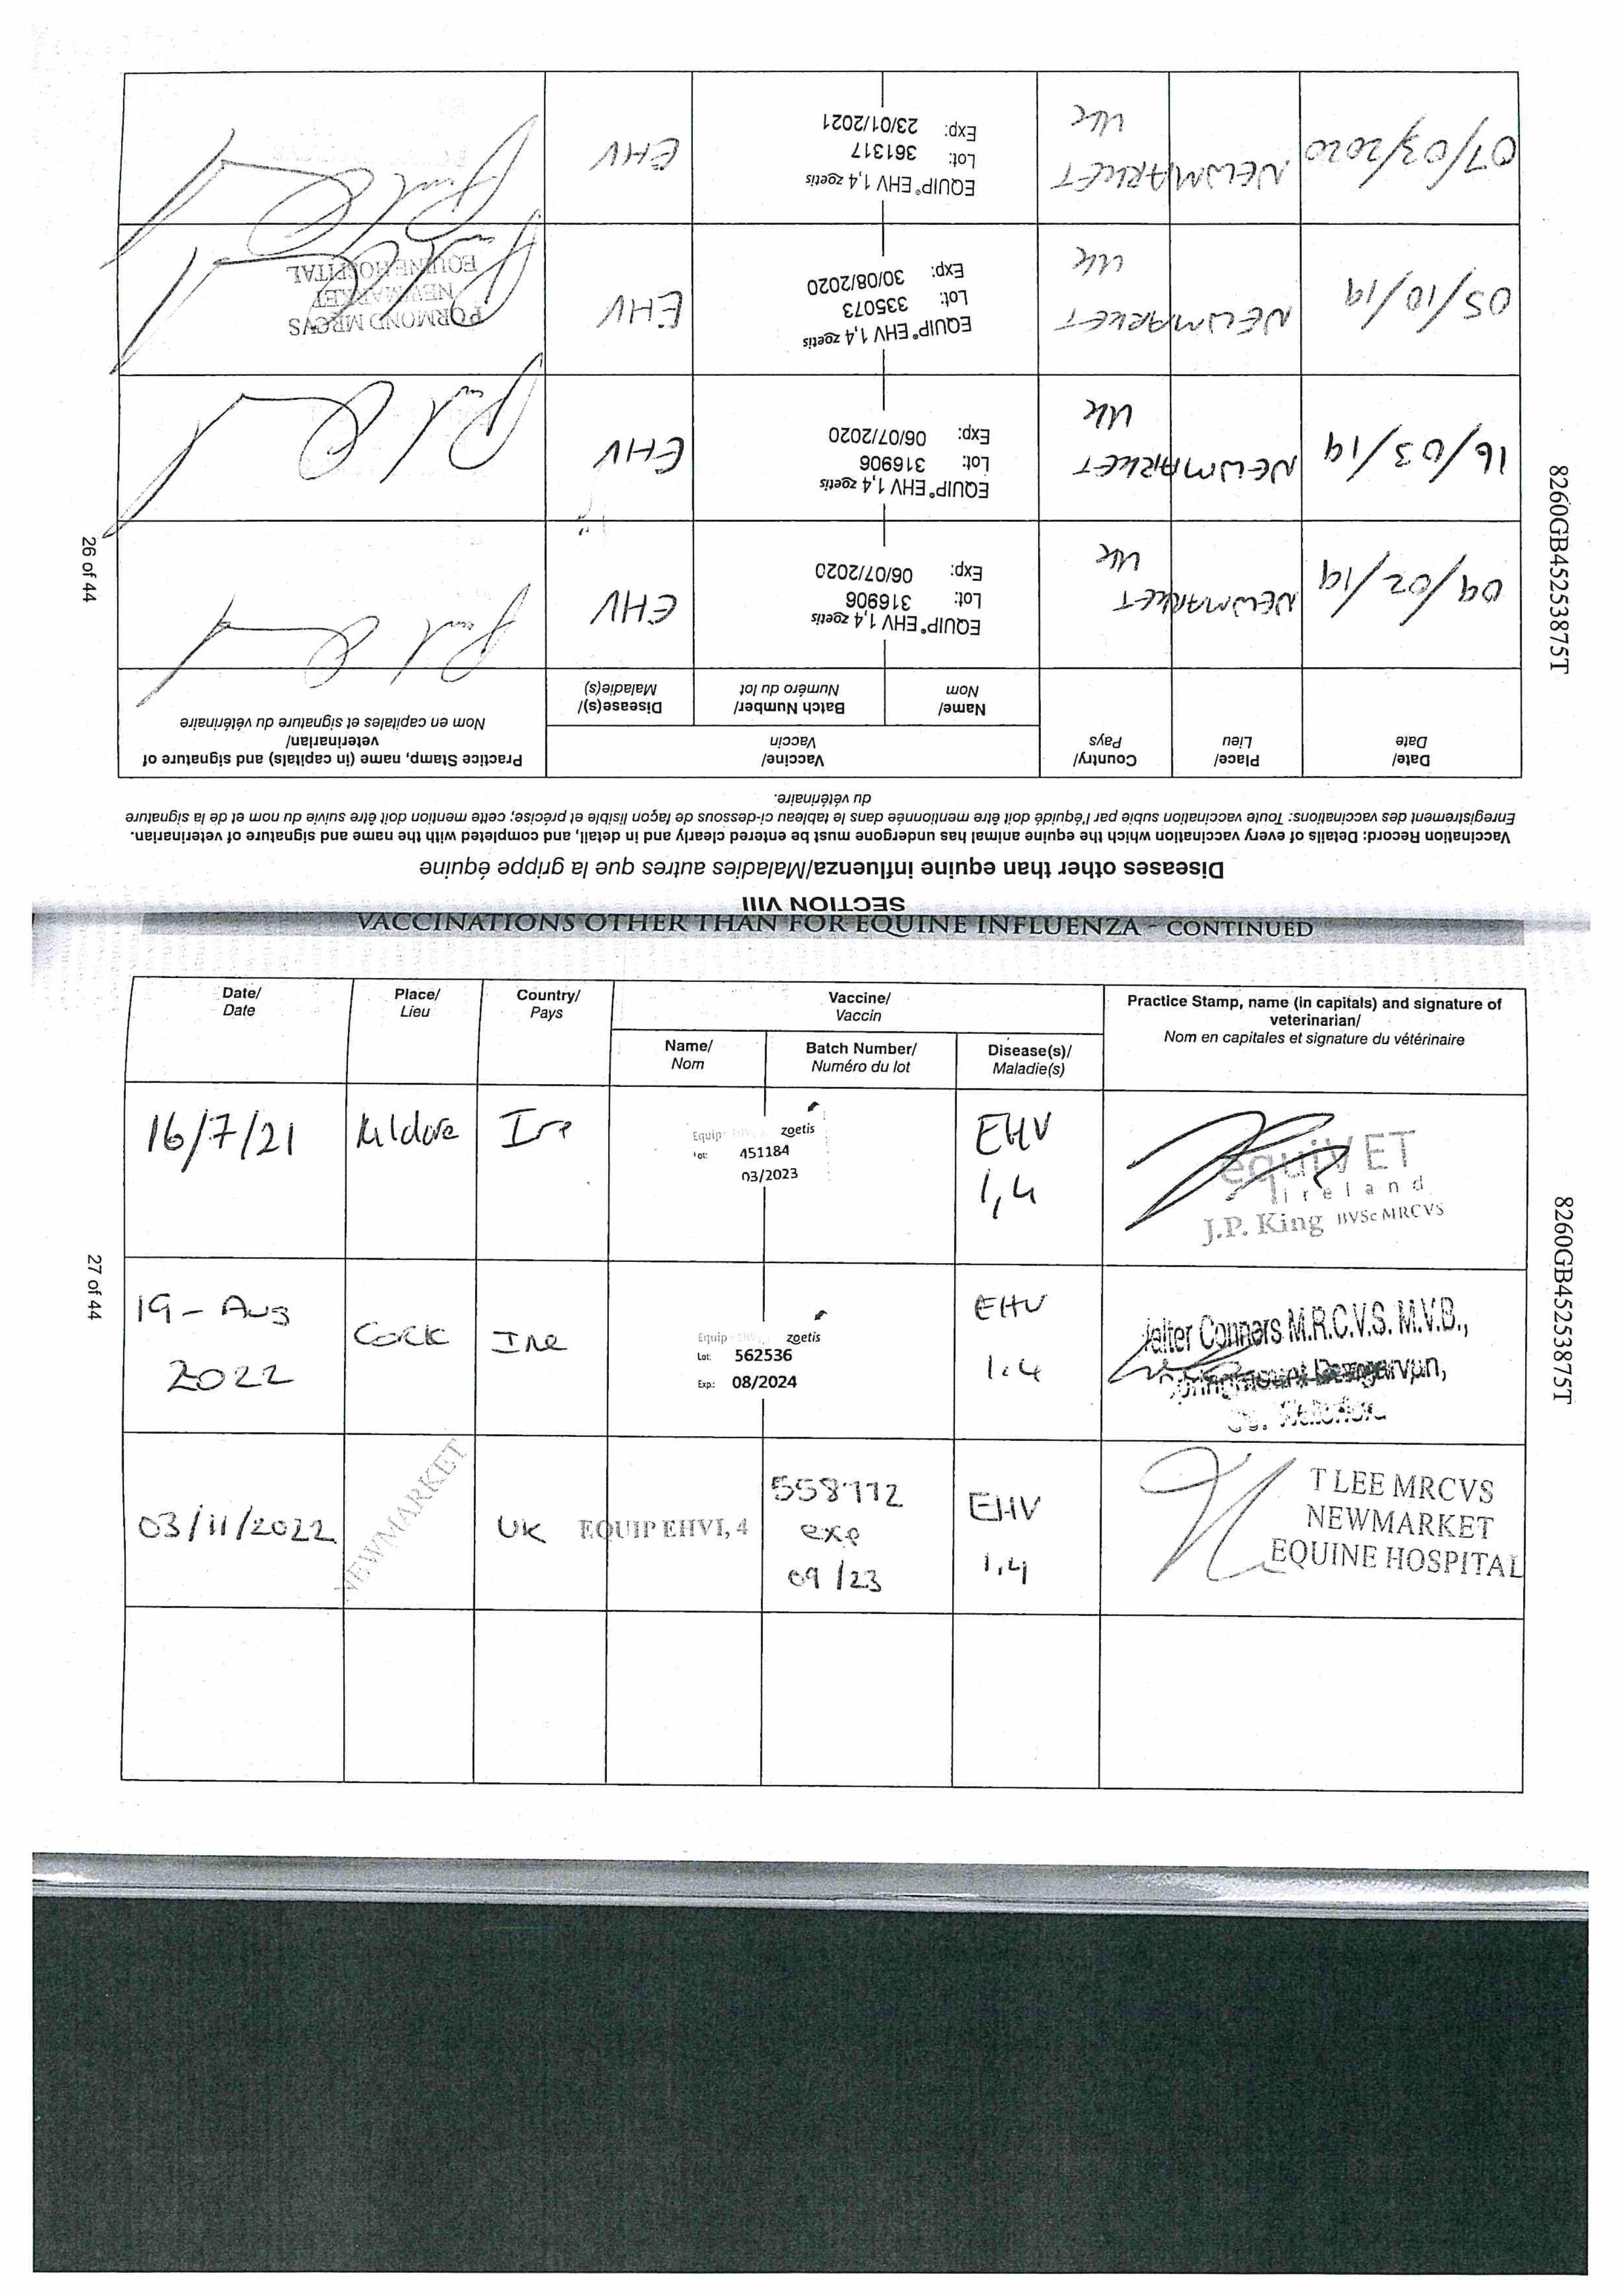 SECTION VIII
Diseases other than equine influenza/Maladies autres que la grippe équine
Vaccination Record: Details of every vaccination which the equine animal has undergone must be entered clearly and in detail, and completed with the name and signature of veterinarian.
Enregistrement des vaccinations: Toute vaccination subie par l'équidé doit être mentionnée dans le tableau ci-dessous de façon lisible et précise; cette mention doit être suivie du nom et de la signature
du vétérinaire.
Date/ Date
Place/ Lieu
Country/ Pays
Vaccine/ Vaccin
Name/ Nom
Batch Number/ Numéro du lot
Disease(s)/ Maladie(s)
Practice Stamp, name (in capitals) and signature of
veterinarian/
Nom en capitales et signature du vétérinaire
09/02/19 NEWMARKET UK
EQUIP® EHV 1,4 zoetis
Lot: 316906
Exp: 06/07/2020
EHV
16/03/19 NEWMARKET UK
EQUIP® EHV 1,4 zoetis
Lot: 316906
Exp: 06/07/2020
EHV
05/10/19 NEWMARKET UK
EQUIP® EHV 1,4 zoetis
Lot: 335073
Exp: 30/08/2020
EHV
P ORMOND MRCVS
NEWMARKET
EQUINE HOSPITAL
07/03/2020 NEWMARKET UK
EQUIP® EHV 1,4 zoetis
Lot: 361317
Exp: 23/01/2021
EHV
26 of 44
8260GB45253875T
VACCINATIONS OTHER THAN FOR EQUINE INFLUENZA - CONTINUED
Date/ Date
Place/ Lieu
Country/ Pays
Vaccine/ Vaccin
Name/ Nom
Batch Number/ Numéro du lot
Disease(s)/ Maladie(s)
Practice Stamp, name (in capitals) and signature of
veterinarian/
Nom en capitales et signature du vétérinaire
16/7/21 Kildare Ire
Equip zoetis
Lot: 451184
03/2023
EHV
1,4
equiVET
ireland
J.P. King BVSc MRCVS
19 - Aug
2022
Cork Ire
Equip EHV zoetis
Lot: 562536
Exp: 08/2024
EHV
1.4
Connors M.R.C.V.S. M.V.B.,
Dungarvan,
Co. Waterford
03/11/2022 NEWMARKET UK EQUIP EHV1, 4
558772
exp
09/23
EHV
1,4
T LEE MRCVS
NEWMARKET
EQUINE HOSPITAL
27 of 44
8260GB45253875T